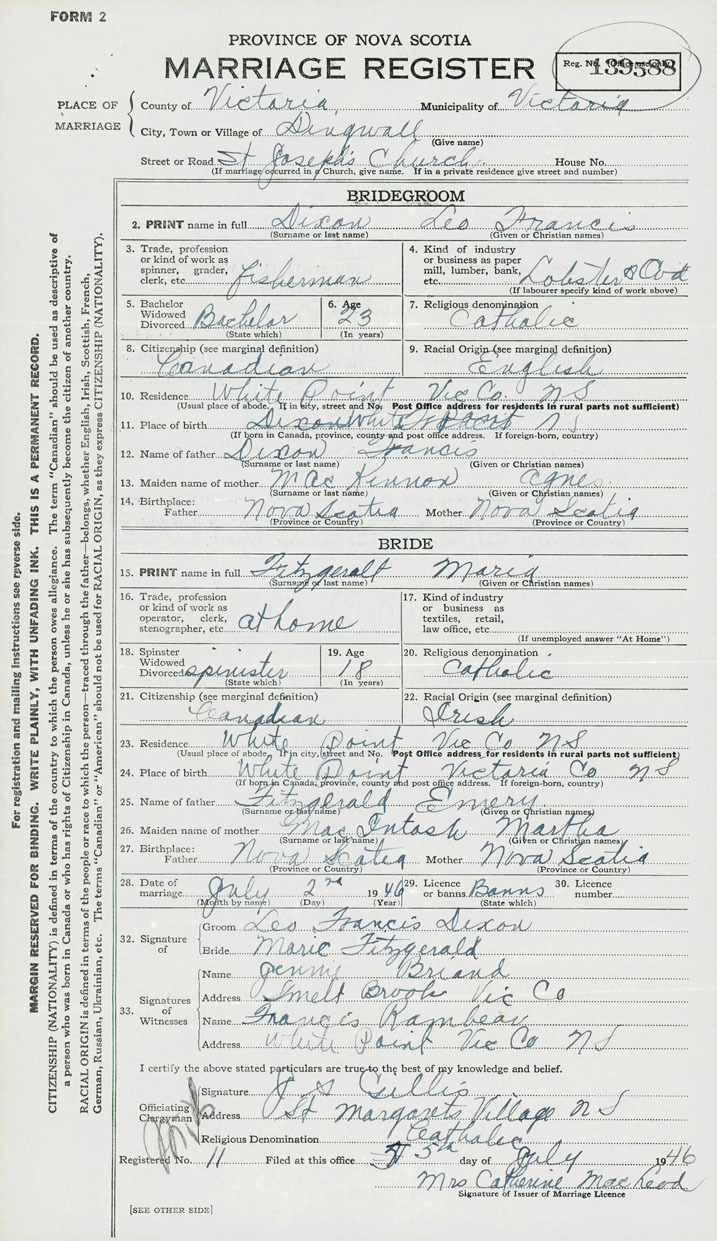 FORM 2
PROVINCE OF NOVA SCOTIA
MARRIAGE REGISTER
Reg. No. (Office use only)
139388
PLACE OF MARRIAGE
County of Victoria Municipality of Victoria
City, Town or Village of Dingwall
(Give name)
Street or Road St Joseph's Church House No.
(If marriage occurred in a Church, give name. If in a private residence give street and number)
BRIDEGROOM
2. PRINT name in full Dixon Leo Francis
(Surname or last name) (Given or Christian names)
3. Trade, profession or kind of work as spinner, grader, clerk, etc. fisherman
4. Kind of industry or business as paper mill, lumber, bank, etc. Lobster & Cod
(If labourer specify kind of work above)
5. Bachelor Widowed Divorced Bachelor
(State which)
6. Age 23
(In years)
7. Religious denomination Catholic
8. Citizenship (see marginal definition) Canadian
9. Racial Origin (see marginal definition) English
10. Residence White Point Vic Co. NS
(Usual place of abode. If in city, street and No. Post Office address for residents in rural parts not sufficient)
11. Place of birth Dixon White Point NS
(If born in Canada, province, county and post office address. If foreign-born, country)
12. Name of father Dixon Francis
(Surname or last name) (Given or Christian names)
13. Maiden name of mother Mac Kinnon Agnes
(Surname or last name) (Given or Christian names)
14. Birthplace: Father Nova Scotia Mother Nova Scotia
(Province or Country) (Province or Country)
BRIDE
15. PRINT name in full Fitzgeralt Maria
(Surname or last name) (Given or Christian names)
16. Trade, profession or kind of work as operator, clerk, stenographer, etc. at home
17. Kind of industry or business as textiles, retail, law office, etc.
(If unemployed answer "At Home")
18. Spinster Widowed Divorced spinister
(State which)
19. Age 18
(In years)
20. Religious denomination Catholic
21. Citizenship (see marginal definition) Canadian
22. Racial Origin (see marginal definition) Irish
23. Residence White Point Vic Co NS
(Usual place of abode. If in city, street and No. Post Office address for residents in rural parts not sufficient)
24. Place of birth White Point Victoria Co NS
(If born in Canada, province, county and post office address. If foreign-born, country)
25. Name of father Fitzgerald Emery
(Surname or last name) (Given or Christian names)
26. Maiden name of mother Mac Intosh Martha
(Surname or last name) (Given or Christian names)
27. Birthplace: Father Nova Scotia Mother Nova Scotia
(Province or Country) (Province or Country)
28. Date of marriage July 2nd 1946
(Month by name) (Day) (Year)
29. Licence or banns Banns
(State which)
30. Licence number
32. Signature of
Groom Leo Francis Dixon
Bride Marie Fitzgerald
33. Signatures of Witnesses
Name Jenny Briand
Address Smelt Brook Vic Co
Name Francis Rambeau
Address White Point Vic Co NS
I certify the above stated particulars are true to the best of my knowledge and belief.
Officiating Clergyman
Signature J S Gillis
Address St Margarets Village NS
Religious Denomination Catholic
Registered No. 11 Filed at this office 5th day of July 1946
Mrs Catherine MacLeod
Signature of Issuer of Marriage Licence
[SEE OTHER SIDE]
For registration and mailing instructions see reverse side.
MARGIN RESERVED FOR BINDING. WRITE PLAINLY, WITH UNFADING INK. THIS IS A PERMANENT RECORD.
CITIZENSHIP (NATIONALITY) is defined in terms of the country to which the person owes allegiance. The term "Canadian" should be used as descriptive of
a person who was born in Canada or who has rights of Citizenship in Canada, unless he or she has subsequently become the citizen of another country.
RACIAL ORIGIN is defined in terms of the people or race to which the person—traced through the father—belongs, whether English, Irish, Scottish, French,
German, Russian, Ukrainian, etc. The terms "Canadian" or "American" should not be used for RACIAL ORIGIN, as they express CITIZENSHIP (NATIONALITY).